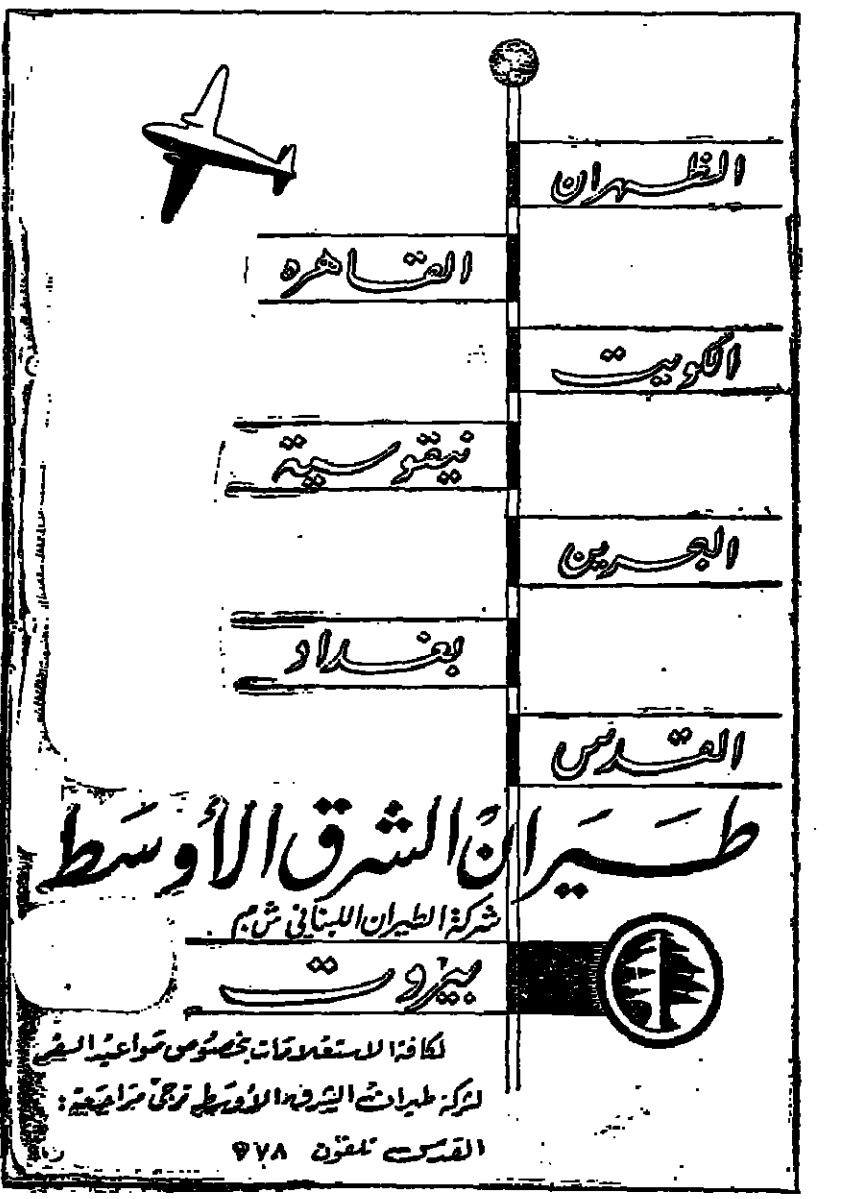 الظهران
القاهره
الكويت
نيقوسية
البحرين
بغداد
القدس
طيران الشرق الأوسط
شركة الطيران اللبناني ش م م
بيروت
لكافة الاستعلامات بخصوص مواعيد السفر
لشركة طيران الشرق الأوسط ترجى مراجعة :
القدس تلفون ٩٧٨